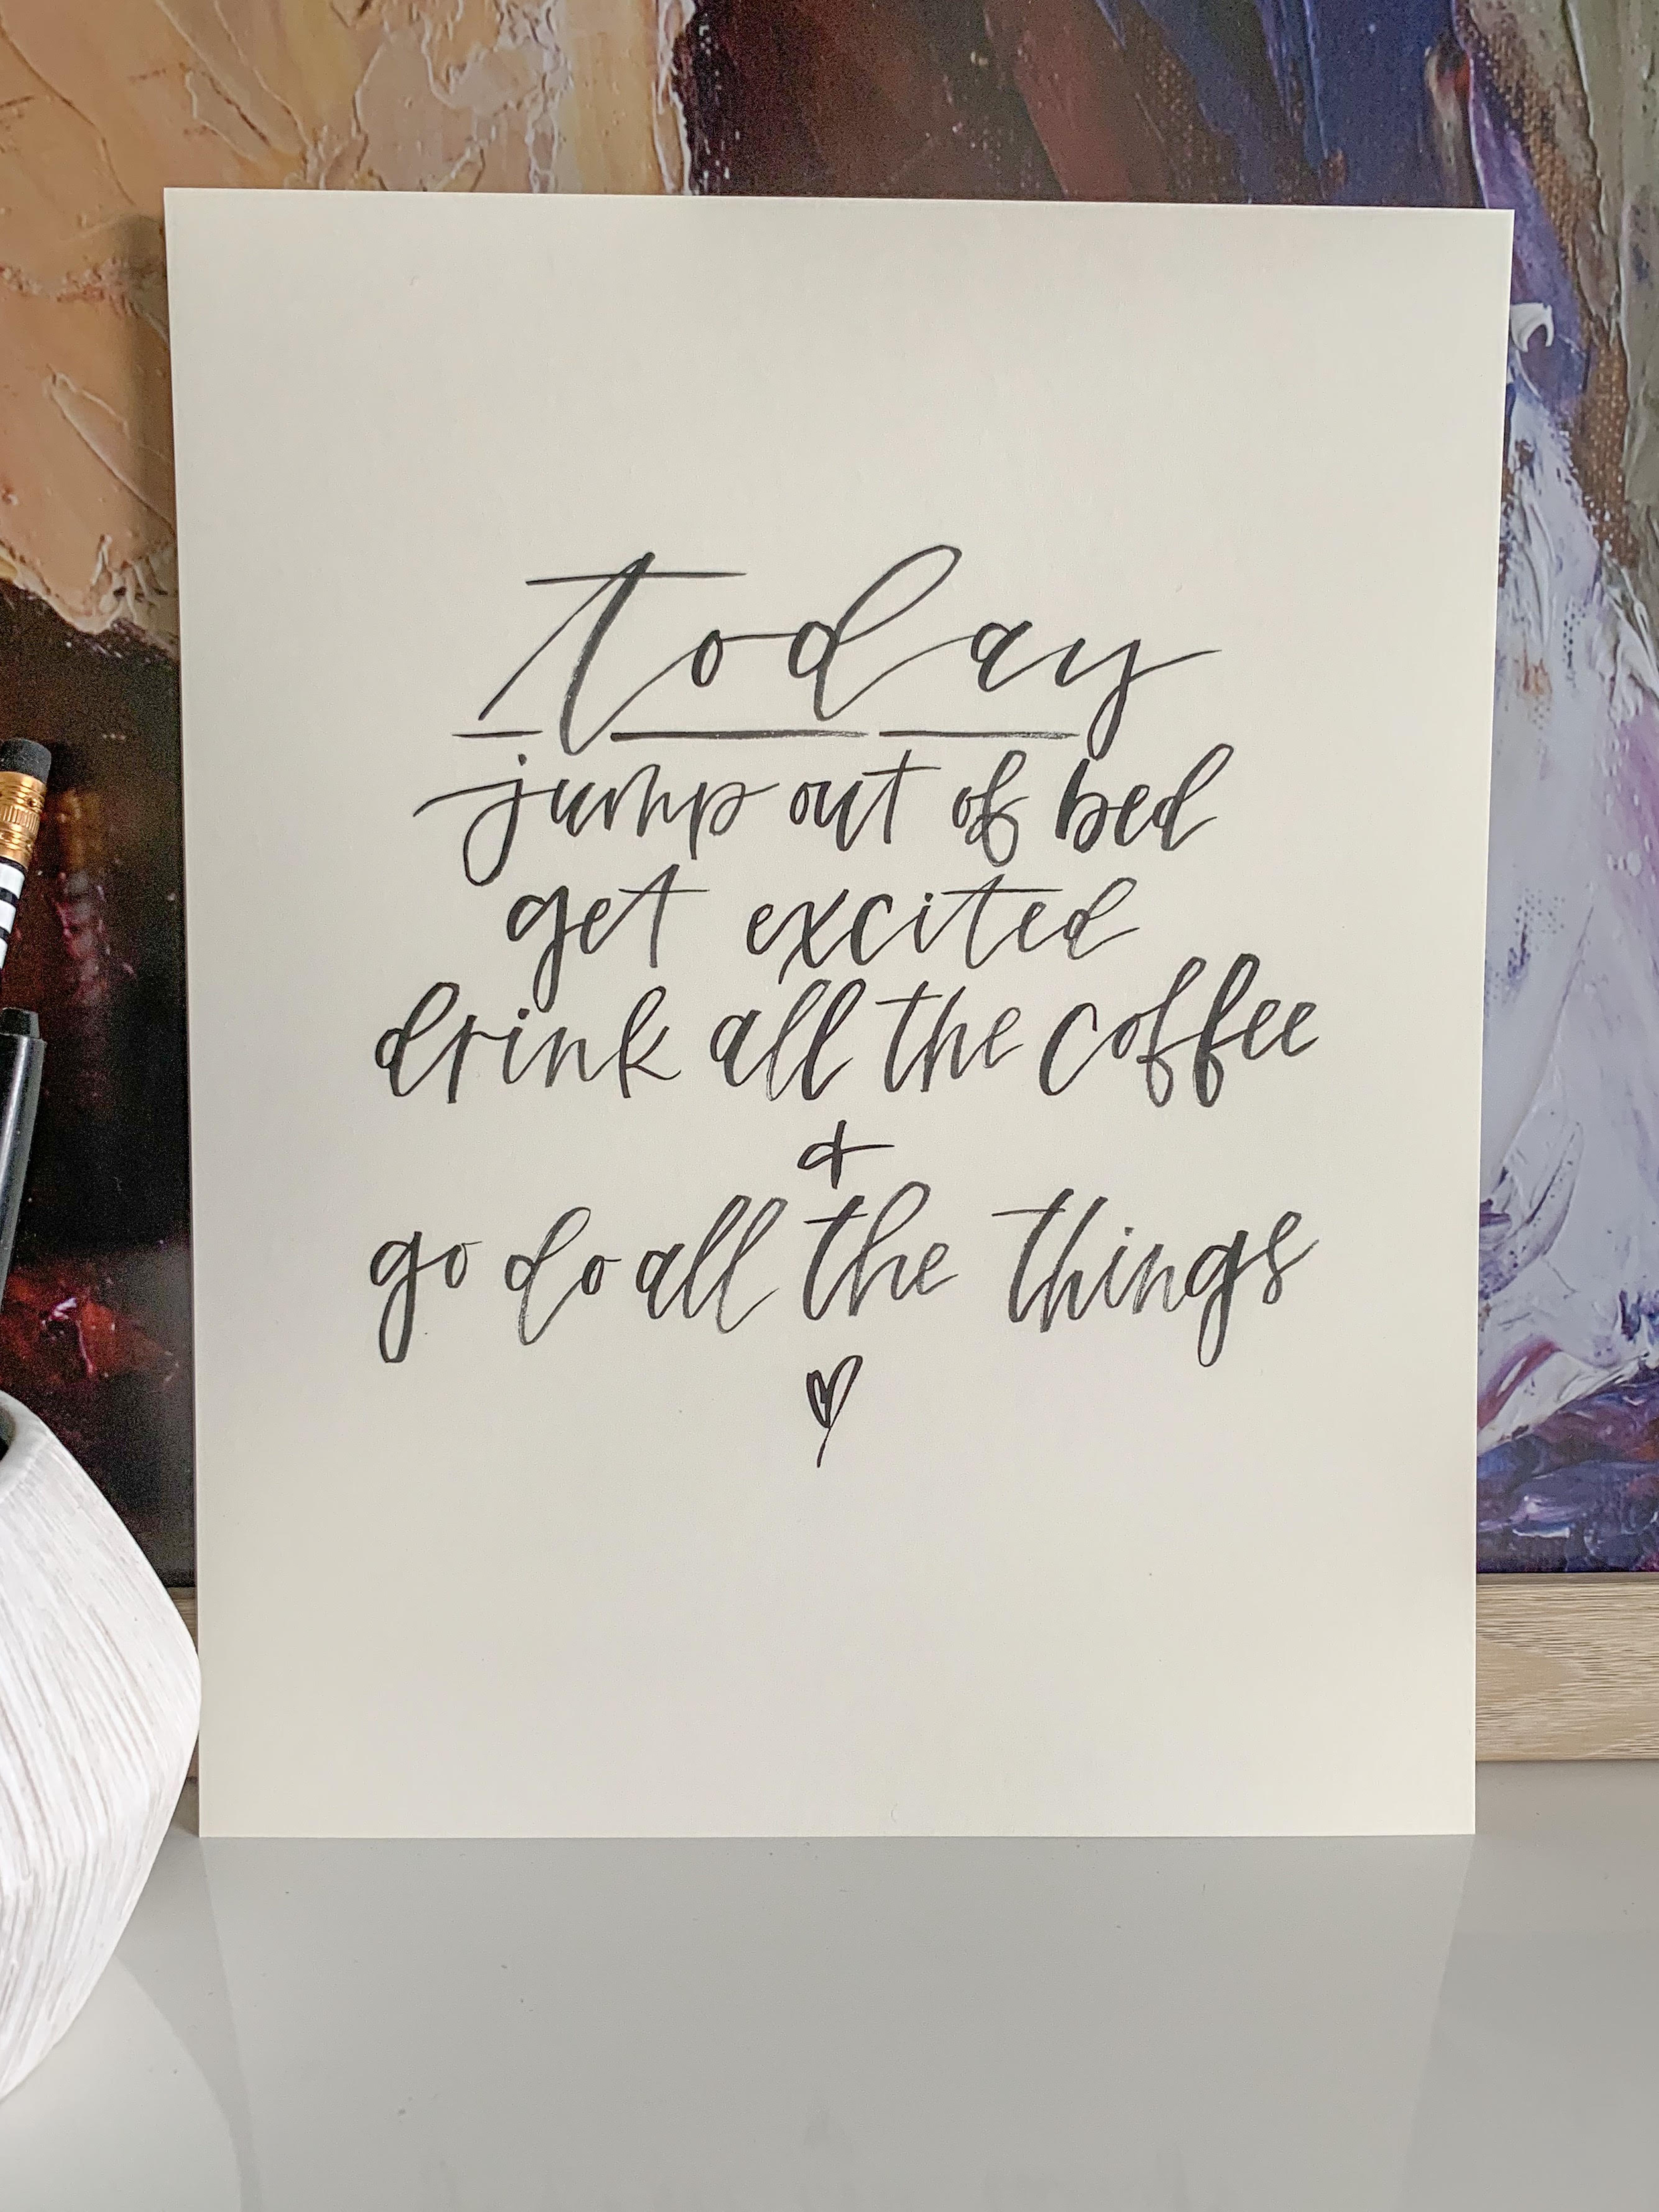 today
jump out of bed
get excited
drink all the coffee
+
go do all the things
♡